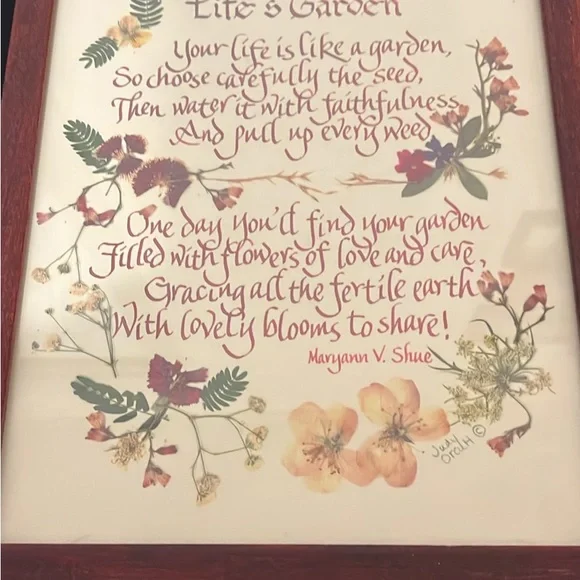 Life's Garden
Your life is like a garden,
So choose carefully the seed,
Then water it with faithfulness
And pull up every weed.
One day you'll find your garden
Filled with flowers of love and care,
Gracing all the fertile earth
With lovely blooms to share!
Maryann V. Shue
Judy ©